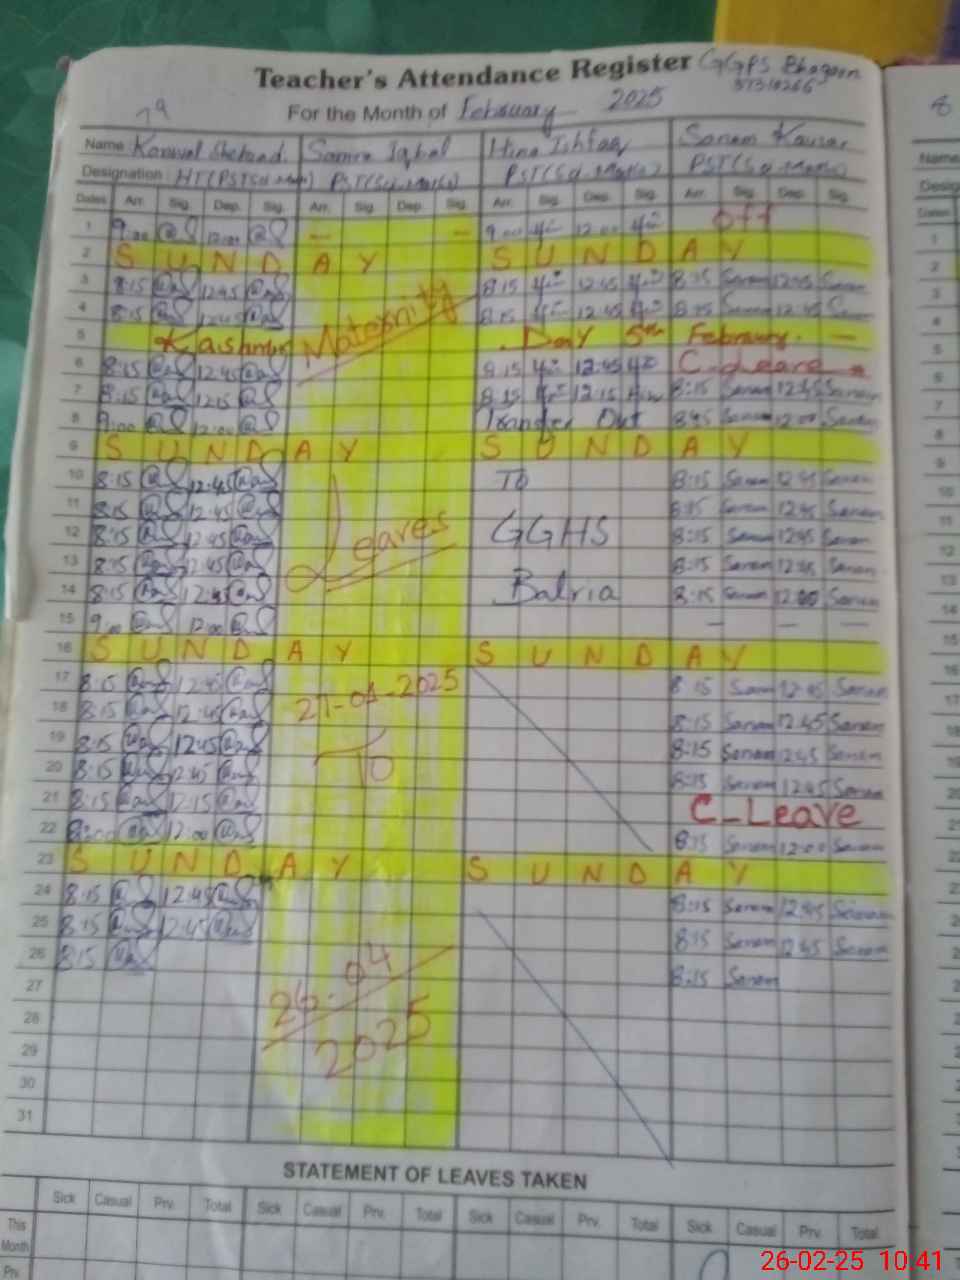 Teacher's Attendance Register GGPS Bhagoon
37310266
For the Month of February 2025
Name Kanwal Shehzad Samra Iqbal Hina Ishfaq Sanam Kausar
Designation HT(PST PST PST PST
Dates Arr. Sig. Dep. Sig. Arr. Sig. Dep. Sig. Arr. Sig. Dep. Sig. Arr. Sig. Dep. Sig.
1 9:00 12:00 — — 9:00 12:00 Off
2 S U N D A Y S U N D A Y
3 8:15 12:45 8:15 12:45 8:15 Sanam 12:45 Sanam
4 8:15 12:45 Maternity 8:15 12:45 8:15 Sanam 12:45 Sanam
5 Kashmir Day 5th February. —
6 8:15 12:45 8:15 12:45 C-Leave
7 8:15 12:15 8:15 12:15 8:15 Sanam 12:45 Sanam
8 9:00 12:00 Transfer Out 8:45 Sanam 12:00 Sanam
9 S U N D A Y S U N D A Y
10 8:15 12:45 To 8:15 Sanam 12:45 Sanam
11 8:15 12:45 8:15 Sanam 12:45 Sanam
12 8:15 12:45 Leaves GGHS 8:15 Sanam 12:45 Sanam
13 8:15 12:45 8:15 Sanam 12:45 Sanam
14 8:15 12:45 Balria 8:15 Sanam 12:00 Sanam
15 9:00 12:00 — — —
16 S U N D A Y S U N D A Y
17 8:15 12:45 27-01-2025 8:15 Sanam 12:45 Sanam
18 8:15 12:45 8:15 Sanam 12:45 Sanam
19 8:15 12:45 To 8:15 Sanam 12:45 Sanam
20 8:15 12:45 8:15 Sanam 12:45 Sanam
21 8:15 12:15 C-Leave
22 9:00 12:00 8:15 Sanam 12:00 Sanam
23 S U N D A Y S U N D A Y
24 8:15 12:45 8:15 Sanam 12:45 Sanam
25 8:15 12:45 8:15 Sanam 12:45 Sanam
26 8:15 26-04 8:15 Sanam
27
28 2025
29
30
31
STATEMENT OF LEAVES TAKEN
Sick Casual Prv. Total Sick Casual Prv. Total Sick Casual Prv. Total Sick Casual Prv. Total
This Month
Prv.
26-02-25 10:41